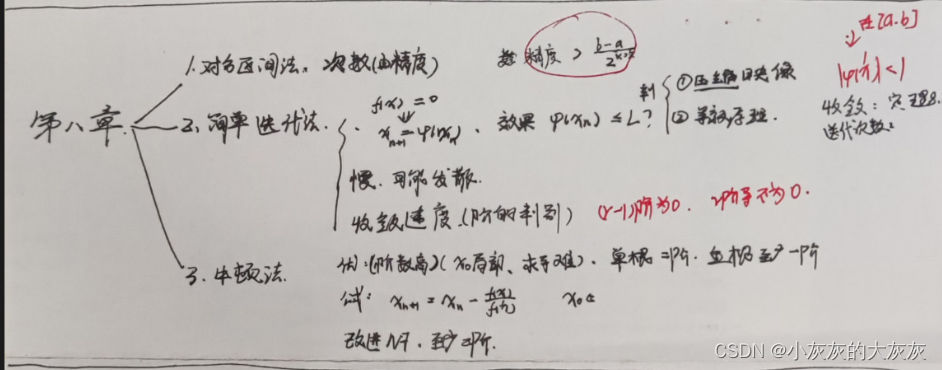 第八章.
1. 对分区间法. 次数(由精度) 精度 > b-a / 2
2. 简单迭代法.
f(x)=0
↓
x_{n+1}=φ(x_n). 效果 φ'(x_n) ≤ L? 判
① 映像
② 导数
慢. 可能发散.
收敛速度.(阶的判别) (r-1)阶为0. r阶导不为0.
在[a.b]
|φ'(x)|<1
收敛: 定理8.
迭代次数:
3. 牛顿法.
优:(阶数高)(x₀局部、求导难). 单根二阶. 重根至少一阶
公式: x_{n+1} = x_n - f(x)/f'(x) x₀ ∈
改进NT. 至少二阶.
CSDN @小灰灰的大灰灰